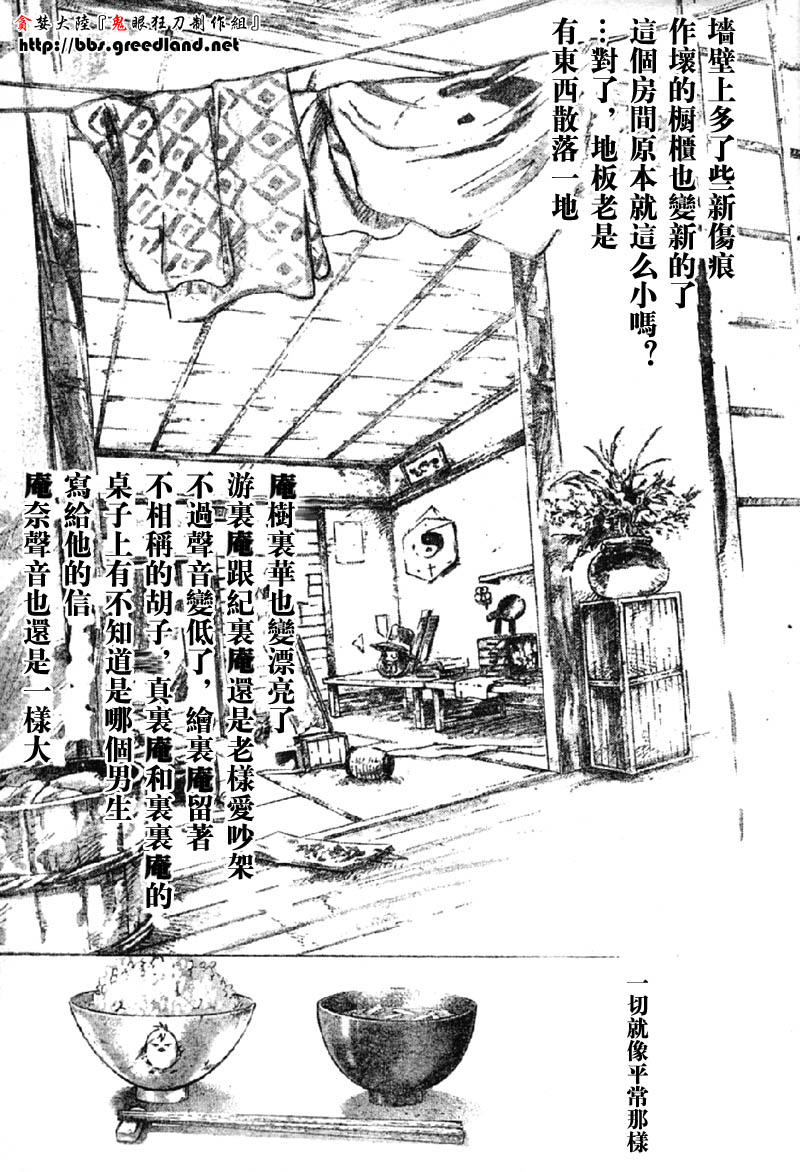 貪婪大陸『鬼眼狂刀制作組』
http://bbs.greedland.net
墻壁上多了些新傷痕
作壞的櫥櫃也變新的了
這個房間原本就這么小嗎？
…對了，地板老是
有東西散落一地
庵樹裏華也變漂亮了
游裏庵跟紀裏庵還是老樣愛吵架
不過聲音變低了，繪裏庵留著
不相稱的胡子，真裏庵和裏裏庵的
桌子上有不知道是哪個男生
寫給他的信
庵奈聲音也還是一樣大
一切就像平常那樣